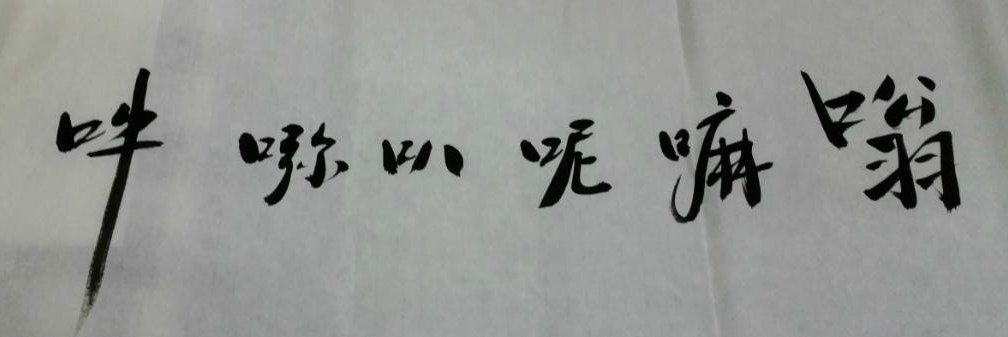 嗡嘛呢叭吽